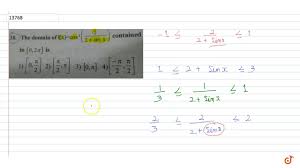 13768
38. The domain of f(x)=cos⁻¹(2/(2+sin x)) contained
in [0,2π] is
1) [0,π/2] 2) [π/2,π] 3) [0,π] 4) [-π/2,π/2]
-1 ≤ 2/(2+Sinx) ≤ 1
1 ≤ 2+Sinx ≤ 3
1/3 ≤ 1/(2+Sinx) ≤ 1
2/3 ≤ 2/(2+Sinx) ≤ 2